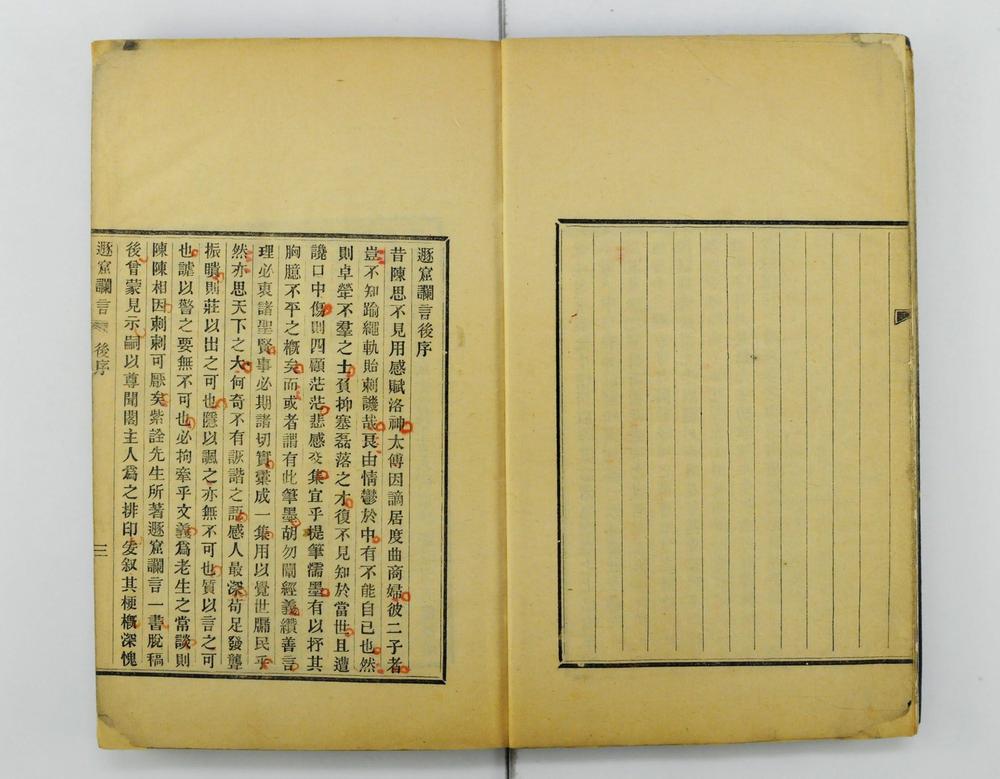 遯窟讕言後序
昔陳思不見用感賦洛神太傅因謫居度曲商婦彼二子者
豈不知踰繩軌貽刺譏哉良由情鬱於中有不能自已也然
則卓犖不羣之士負抑塞磊落之才復不見知於當世且遭
讒口中傷則四顧茫茫悲感交集宜乎提筆濡墨有以抒其
胸臆不平之槪矣而或者謂有此筆墨胡勿闡經義纘善言
理必衷諸聖賢事必期諸切實彙成一集用以覺世牖民乎
然亦思天下之大何奇不有詼諧之語感人最深苟足發聾
振聵則莊以出之可也隱以諷之亦無不可也質以言之可
也謔以警之要無不可也必拘牽乎文義爲老生之常談則
陳陳相因刺刺可厭矣紫詮先生所著遯窟讕言一書脫稿
後曾蒙見示嗣以尊聞閣主人爲之排印爰叙其梗槪深愧
遯窟讕言 後序 三